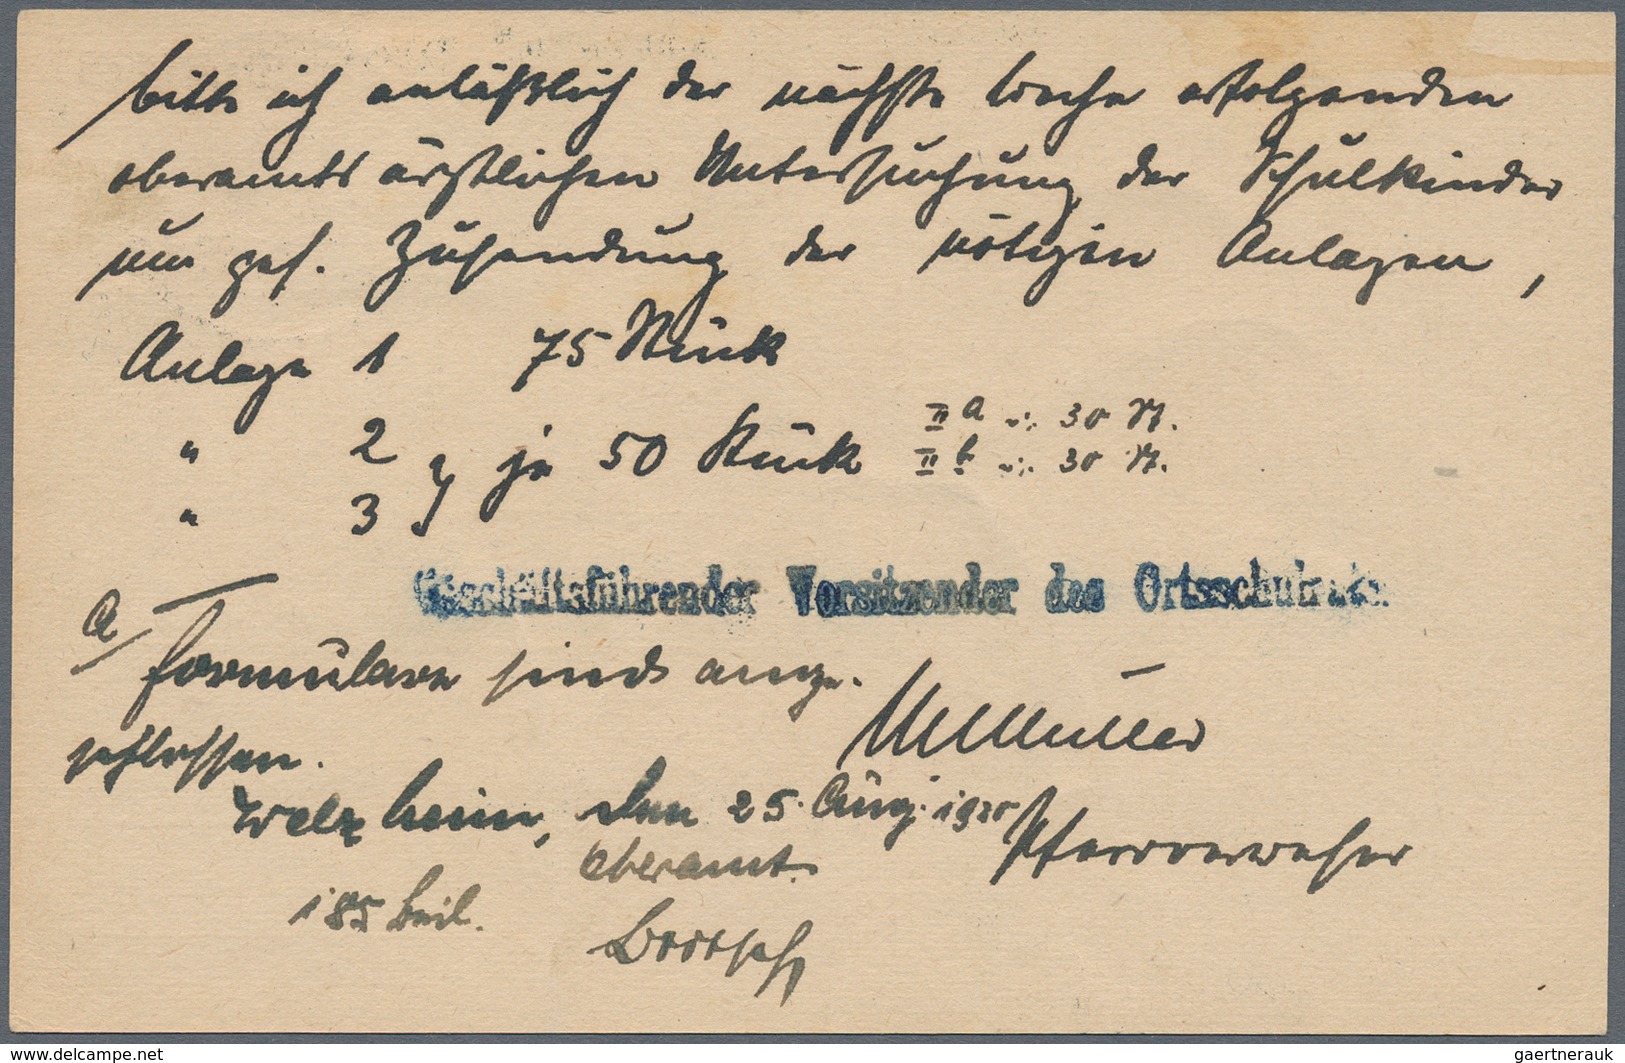 bitte ich anläßlich der nächste Woche erfolgenden
oberamtsärztlichen Untersuchung der Schulkinder
um gef. Zusendung der nötigen Anlagen,
Anlage 1 75 Stück
" 2 } je 50 Stück II a ·/. 30 St.
" 3 II b ·/. 30 St.
Geschäftsführender Vorsitzender des Ortsschulrats.
A/ Formulare sind ange-
schlossen. Müller
Welzheim, den 25. Aug. 1920 Pfarrverweser
Oberamt.
185 Beil.
delcampe.net
gaertnerauk